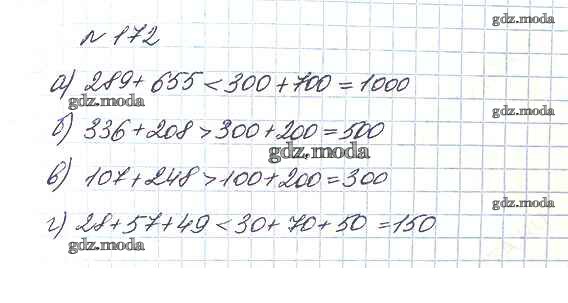 gdz.moda
№ 172
а) 289 + 655 < 300 + 700 = 1000
gdz.moda gdz.moda
б) 336 + 208 > 300 + 200 = 500
gdz.moda
в) 107 + 248 > 100 + 200 = 300
gdz.moda
г) 28 + 57 + 49 < 30 + 70 + 50 = 150
gdz.moda
gdz.moda